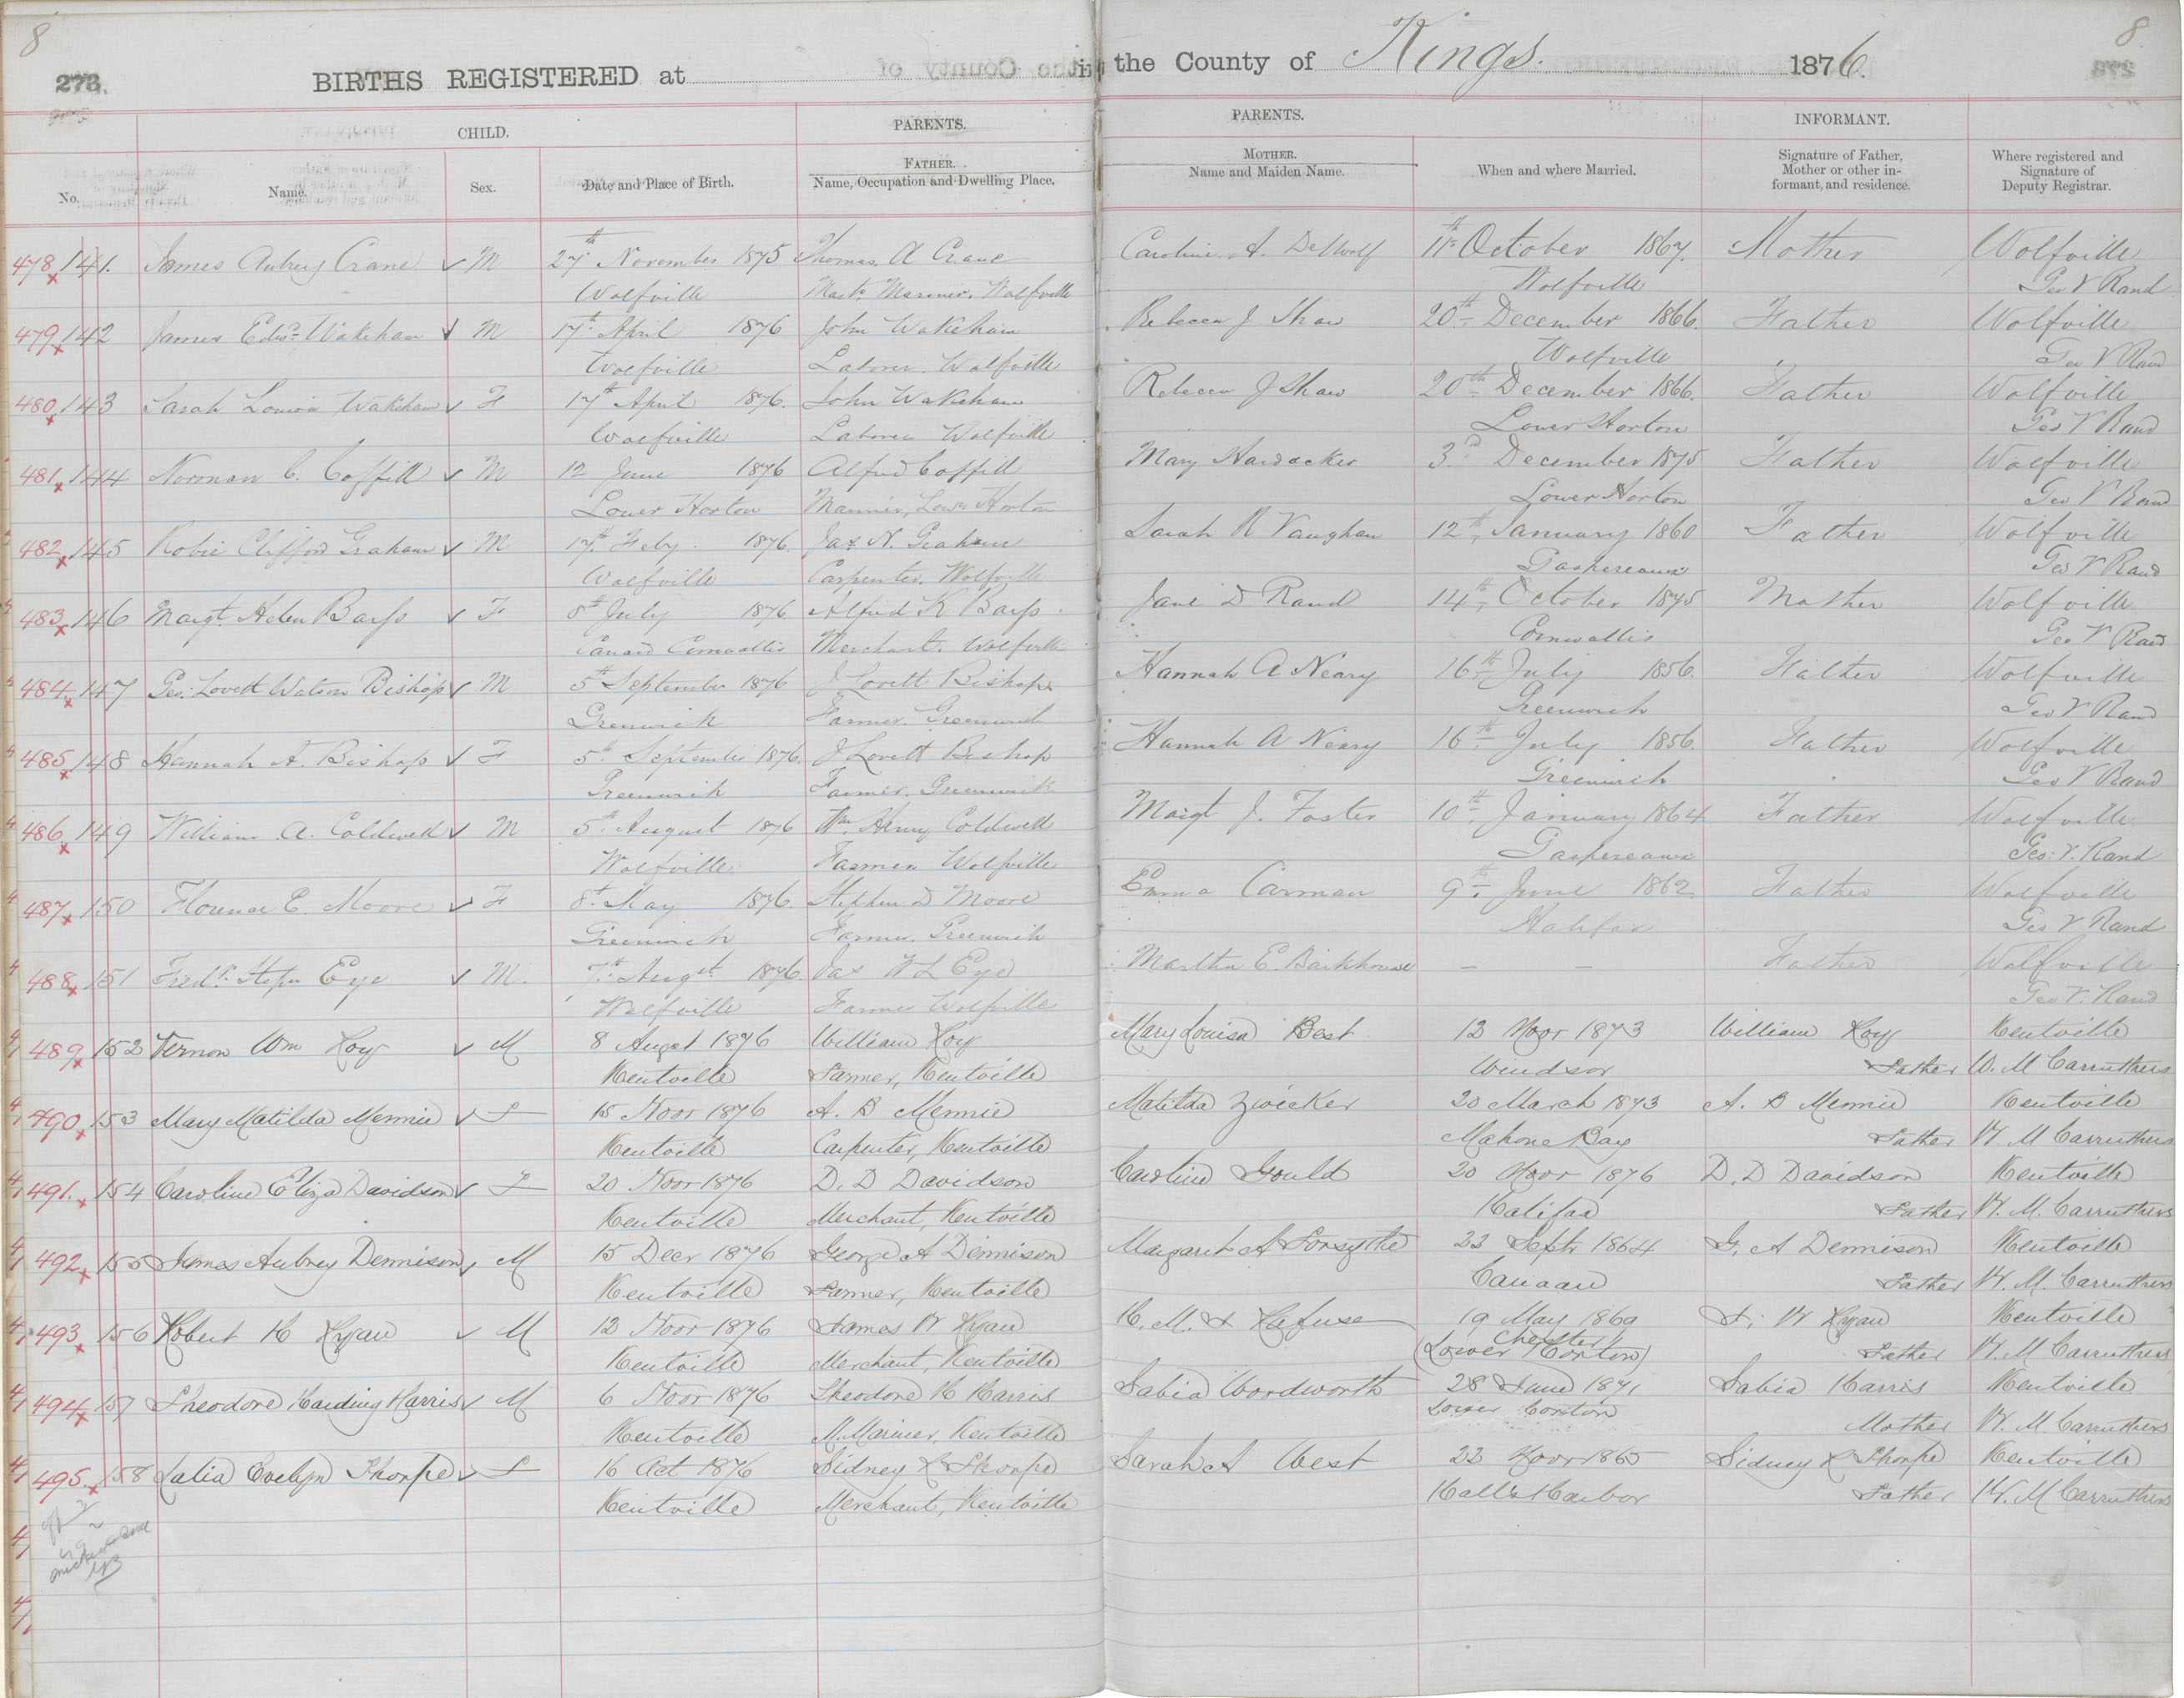 8
8
273.
BIRTHS REGISTERED at in the County of Kings. 1876.
CHILD.
PARENTS.
PARENTS.
INFORMANT.
No.
Name.
Sex.
Date and Place of Birth.
FATHER.
Name, Occupation and Dwelling Place.
MOTHER.
Name and Maiden Name.
When and where Married.
Signature of Father,
Mother or other in-
formant, and residence.
Where registered and
Signature of
Deputy Registrar.
478 x 141. James Aubrey Crane M 27th November 1875 Thomas A Crane Caroline A. DeWolf 11th October 1867. Mother Wolfville
Wolfville Mastr Mariner, Wolfville Wolfville Geo V Rand
479 x 142 James Edwd Wakeham M 17th April 1876 John Wakeham Rebecca J Shaw 20th December 1866. Father Wolfville
Wolfville Laborer. Wolfville Wolfville Geo V Rand
480 x 143 Sarah Louisa Wakeham F 17th April 1876. John Wakeham Rebecca J Shaw 20th December 1866. Father Wolfville
Wolfville Laborer Wolfville Lower Horton Geo V Rand
481 x 144 Norman C. Coffill M 12 June 1876 Alfred Coffill Mary Hardacker 3d December 1875 Father Wolfville
Lower Horton Mariner, Lowr Horton Lower Horton Geo V Rand
482 x 145 Robie Clifford Graham M 17th Feby. 1876. Jas N. Graham Sarah R Vaughan 12th January 1860 Father Wolfville
Wolfville Carpenter, Wolfville Gaspereaux Geo V Rand
483 x 146 Margt Helen Barss F 8th July 1876 Alfred K Barss Jane D Rand 14th October 1875 Mother Wolfville
Canard Cornwallis Merchant. Wolfville Cornwallis Geo V Rand
484 x 147 Geo: Lovett Watson Bishop M 5th September 1876 J Lovett Bishop Hannah A Neary 16th July 1856. Father Wolfville
Greenwich Farmer. Greenwich Greenwich Geo V Rand
485 x 148 Hannah A. Bishop F 5th September 1876. J Lovett Bishop Hannah A Neary 16th July 1856. Father Wolfville
Greenwich Farmer, Greenwich Greenwich Geo V Rand
486 x 149 William A. Coldwell M 5th August 1876 Wm Henry Coldwell Margt J. Foster 10th January 1864 Father Wolfville
Wolfville Farmer Wolfville Gaspereaux Geo: V. Rand
487 x 150 Florence E Moore F 8th May 1876. Stephen D Moore Emma Carman 9th June 1862 Father Wolfville
Greenwich Farmer. Greenwich Halifax Geo V Rand
488 x 151 Fredk Eye M. 7th Augst 1876. Jas W L Eye Martha E. Barkhouse – – Father Wolfville
Wolfville Farmer Wolfville Geo V. Rand
489 x 152 Vernon Wm Hoy M 8 Augst 1876 William Hoy Mary Louisa Best 12 Novr 1873 William Hoy Kentville
Kentville Farmer, Kentville Windsor Father W. M Carruthers
490 x 153 Mary Matilda Mennie F 15 Novr 1876 A. B Mennie Matilda Zwicker 20 March 1873 A. B Mennie Kentville
Kentville Carpenter, Kentville Mahone Bay Father W. M Carruthers
491. x 154 Caroline Eliza Davidson F 20 Novr 1876 D. D Davidson Caroline Gould 20 Novr 1876 D. D Davidson Kentville
Kentville Merchant, Kentville Halifax Father W. M. Carruthers
492 x 155 James Aubrey Dennison M 15 Decr 1876 George A Dennison Margaret A Forsythe 22 Septr 1864 G. A Dennison Kentville
Kentville Farmer, Kentville Canaan Father W. M. Carruthers
493 x 156 Robert H Ryan M 12 Novr 1876 James W Ryan H. M. J Hefuse 19 May 1869 J. W Ryan Kentville
Kentville Merchant, Kentville (Lower Horton) Chester Father W. M Carruthers
494 x 157 Theodore Harding Harris M 6 Novr 1876 Theodore H Harris Sabia Wordworth 28 June 1871 Sabia Harris Kentville
Kentville M. Mariner, Kentville Lower Horton Mother W. M Carruthers
495. x 158 Lalia Evelyn Thorpe F 16 Oct 1876 Sidney L Thorpe Sarah A West 22 Novr 1865 Sidney L Thorpe Kentville
Kentville Merchant, Kentville Hall's Harbor Father W. M Carruthers